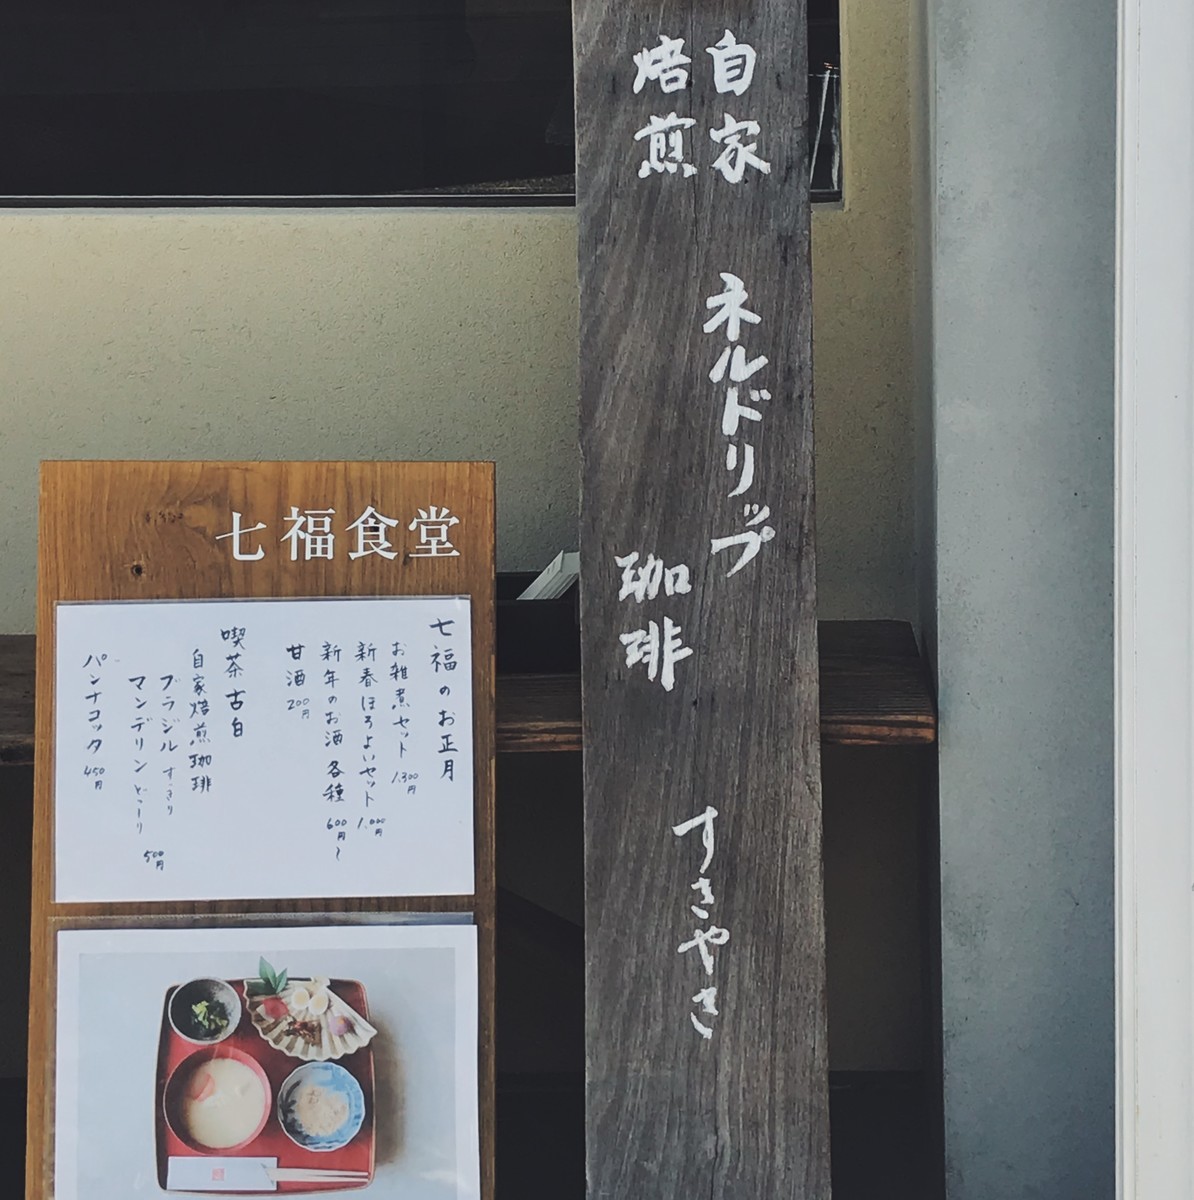 自家
焙煎
ネルドリップ
珈琲
すきやき
七福食堂
七福のお正月
お雑煮セット 1,300円
新春ほろよいセット 1,000円
新年のお酒 各種 600円〜
甘酒 200円
喫茶古白
自家焙煎珈琲
ブラジル すっきり
マンデリン どっしり 500円
パンナコッタ 450円